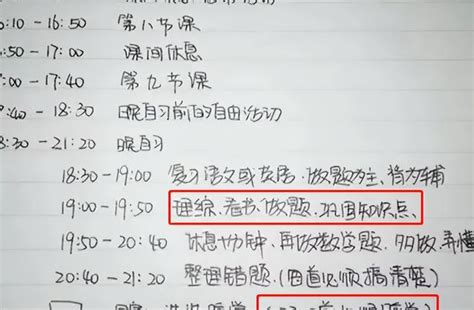 :10-16:50 第八节课
:50-17:00 课间休息
:00-17:40 第九节课
:40-18:30 晚自习前的自由活动
8:30-21:20 晚自习
18:30-19:00 复习语文或英语.做题为主、背为辅
19:00-19:50 理综.看书、做题.巩固知识点、
19:50-20:40 休息十分钟、再做数学题.多做、弄懂
20:40-21:20 整理错题.(四道必须搞清楚)